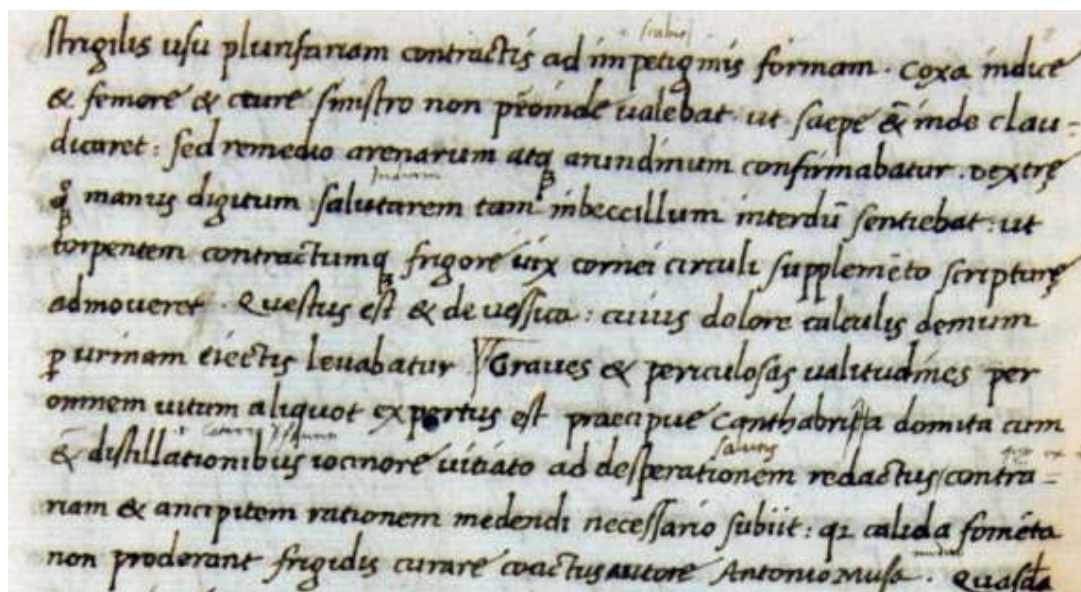 strigilis usu plurifariam contractis ad impetiginis formam . Coxa indice
& femore & crure sinistro non ꝑoinde ualebat ut saepe &̄ inde clau-
dicaret : sed remedio arenarum atq; arundinum confirmabatur . Dextrę
q̊; manus digitum salutarem tam inbeccillum interdū sentiebat : ut
torpentem contractumq; frigore uix cornei circuli supplemēto scripturę
admoueret . Questus est & de uessica : cuius dolore calculis demum
ꝑ urinam eiectis leuabatur Graues & periculosas ualitudines per
omnem uitam aliquot expertus est praecipue Canthabria domita cum
&̄ distillationibus iocinore uitiato ad desperationem redactus contra-
riam & ancipitem rationem medendi necessario subiit : qꝛ calida fomēta
non proderant frigidis curare coactus autore Antonio Musa . Quasdā